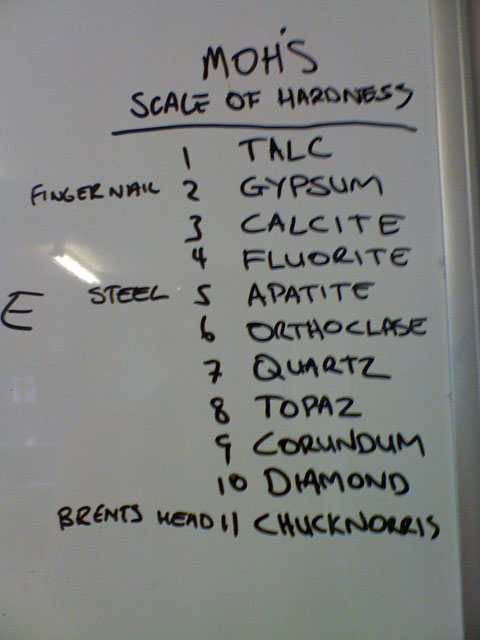 MOH'S
SCALE OF HARDNESS
1 TALC
FINGERNAIL 2 GYPSUM
3 CALCITE
4 FLUORITE
E
STEEL 5 APATITE
6 ORTHOCLASE
7 QUARTZ
8 TOPAZ
9 CORUNDUM
10 DIAMOND
BRENTS HEAD 11 CHUCKNORRIS